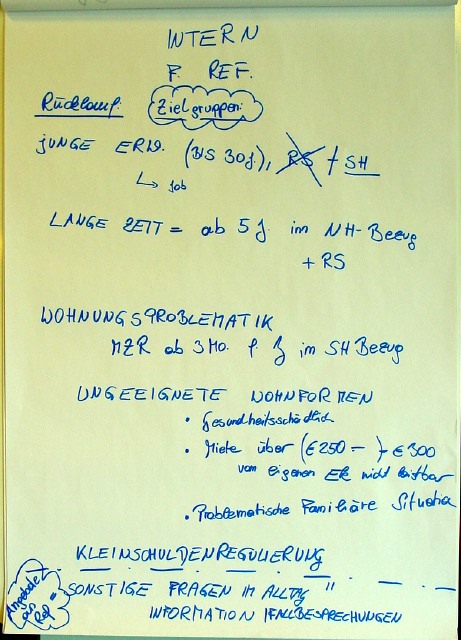 INTERN
F. REF.
Rücklauf: Zielgruppen:
JUNGE ERW. (BIS 30 J.), RS + SH
↳ Job
LANGE ZEIT = ab 5 J. im NH-Bezug
+ RS
WOHNUNGSPROBLEMATIK
MZR ab 3 MO. im SH Bezug
UNGEEIGNETE WOHNFORMEN
• Gesundheitsschädlich
• Miete über (€ 250 – ) - € 300
vom eigenen EK nicht leistbar
• Problematische Familiäre Situatio
KLEINSCHULDENREGULIERUNG
"SONSTIGE FRAGEN IM ALLTAG"
INFORMATION / FALLBESPRECHUNGEN
Angebote
aus
Ref